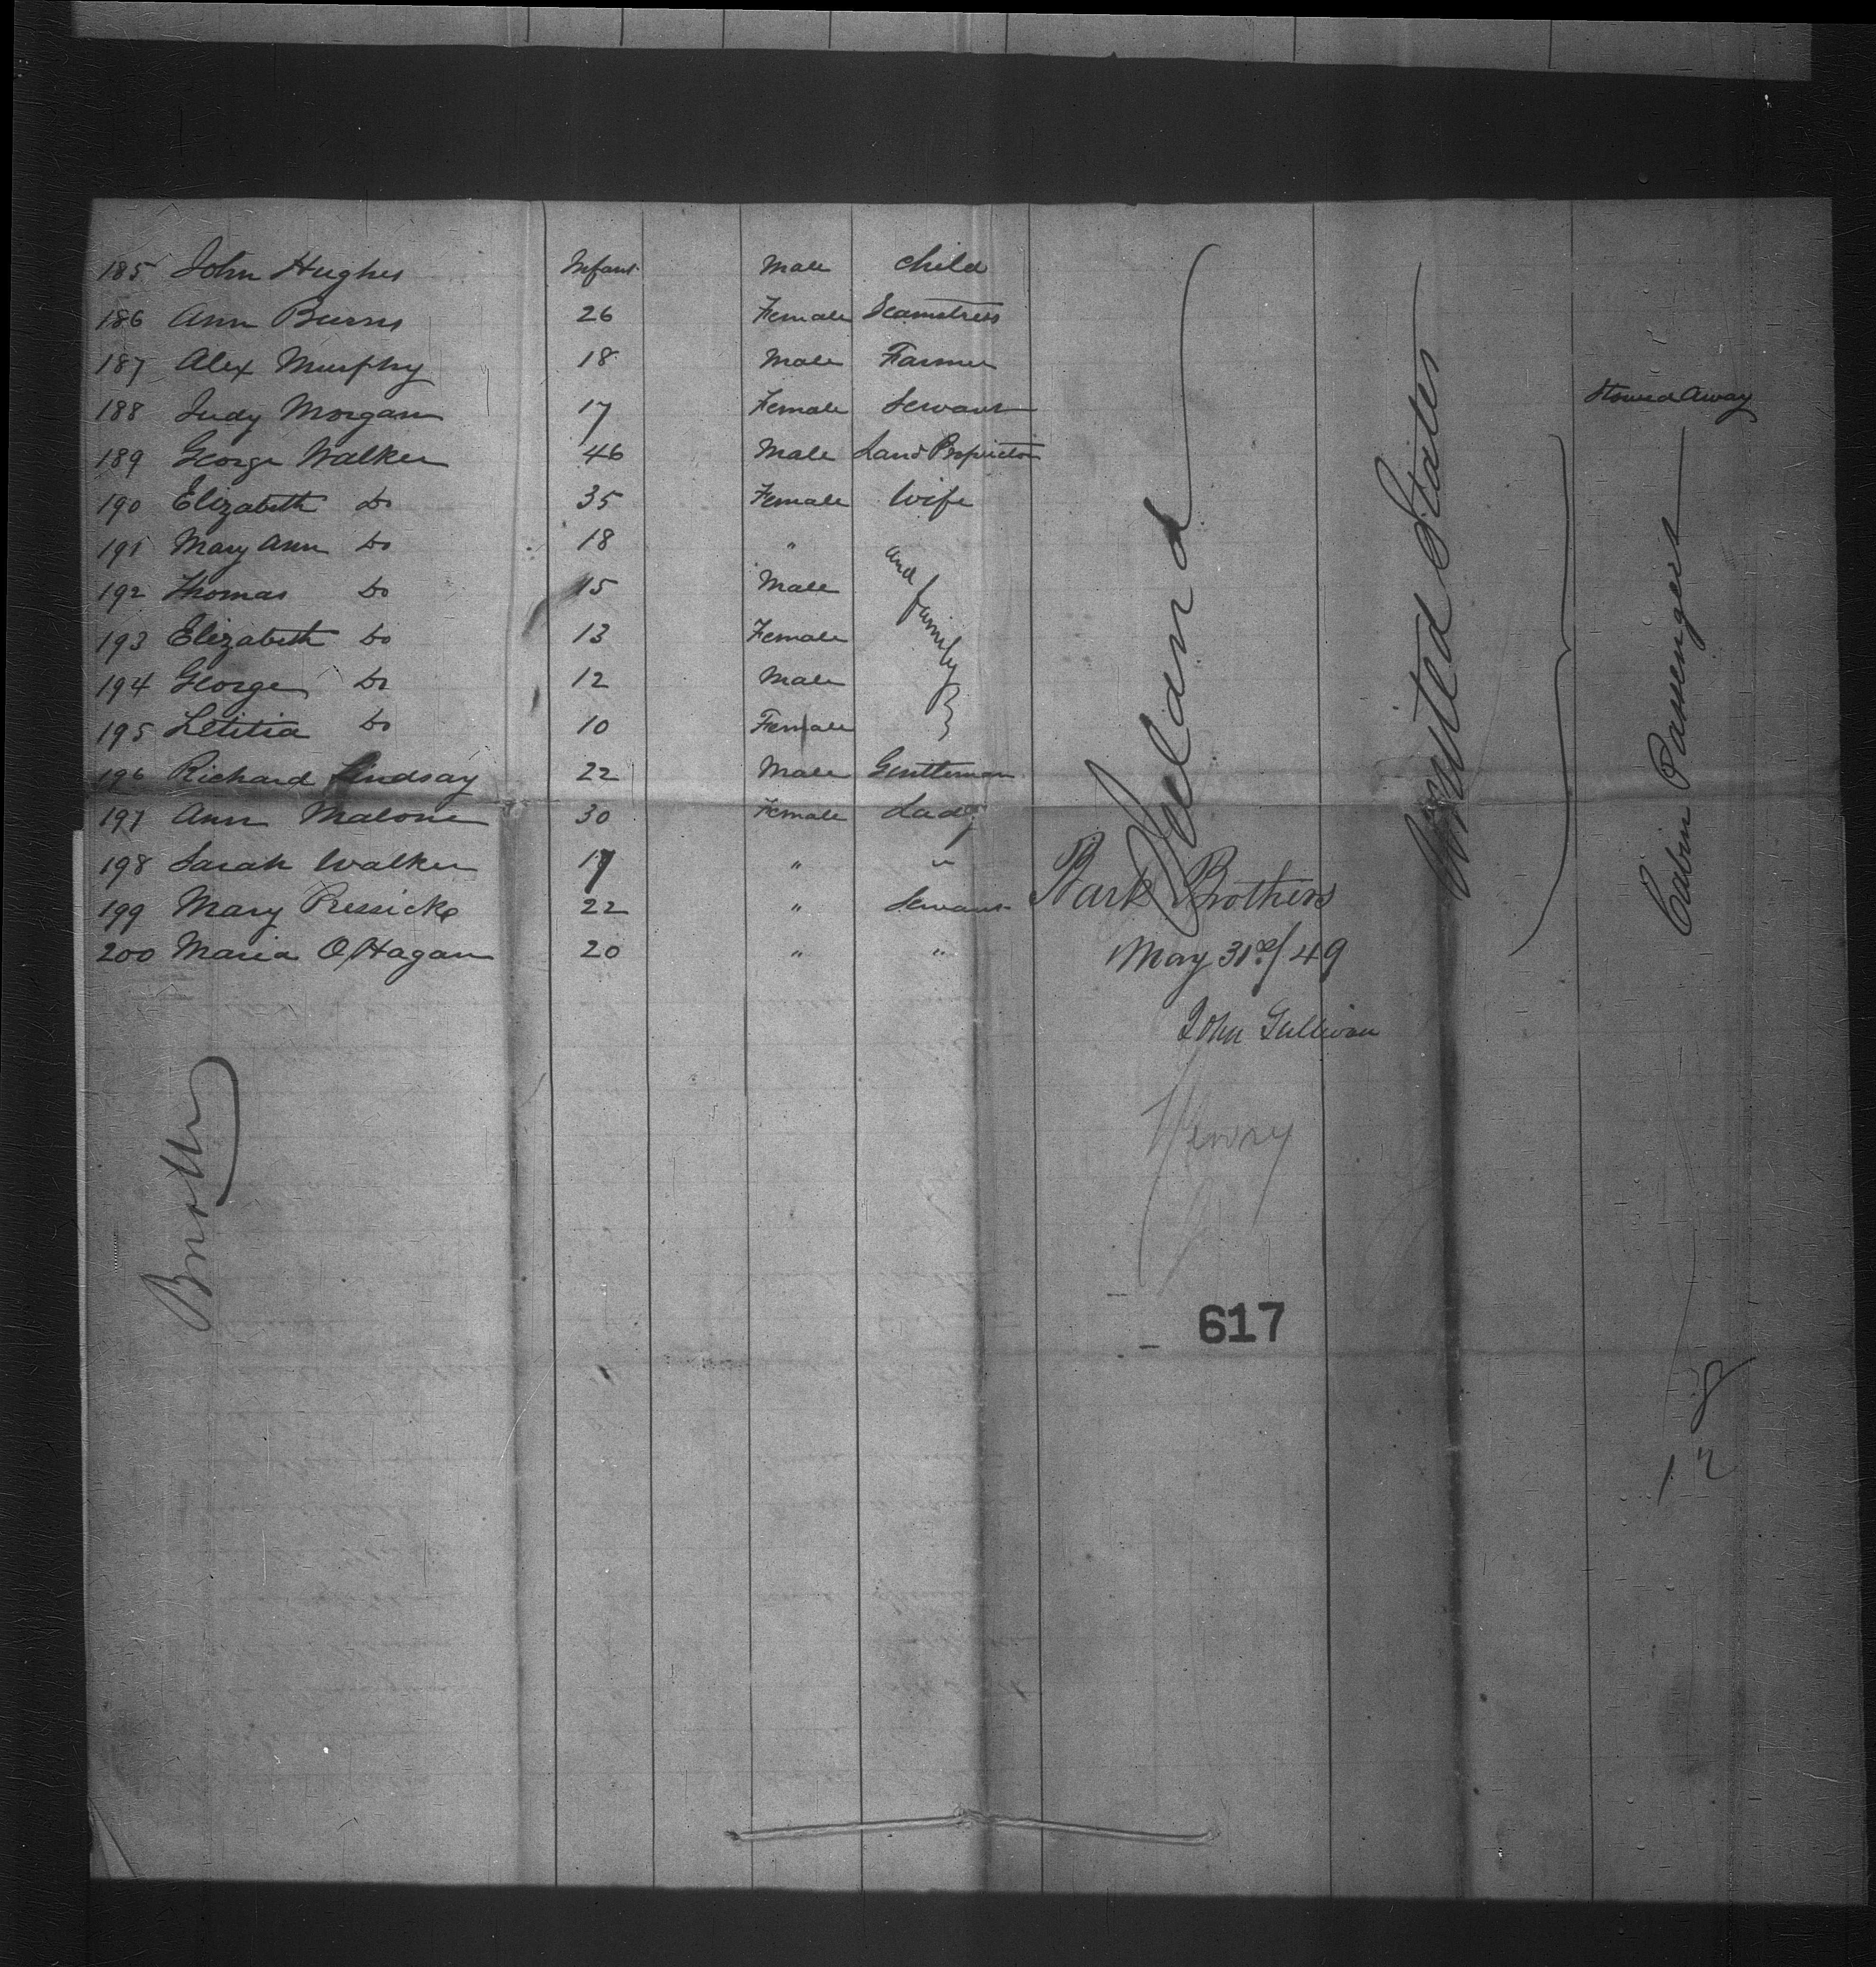 185 John Hughes Infant Male Child
186 Ann Burns 26 Female Seamstress
187 Alex Murphy 18 Male Farmer
188 Judy Morgan 17 Female Servant Stowed Away
189 George Walker 46 Male Land Proprietor
190 Elizabeth Do 35 Female Wife
191 Mary Ann Do 18 "
192 Thomas Do 15 Male
193 Elizabeth Do 13 Female
194 George Do 12 Male
195 Letitia Do 10 Female
and family
196 Richard Lindsay 22 Male Gentleman
197 Ann Malone 30 Female Lady
198 Sarah Walker 17 " "
199 Mary Pressicke 22 " Servant
200 Maria O'Hagan 20 " "
Ireland
United States
Cabin Passengers
Bark Brothers
May 31st/49
John Gullivan
Newry
617